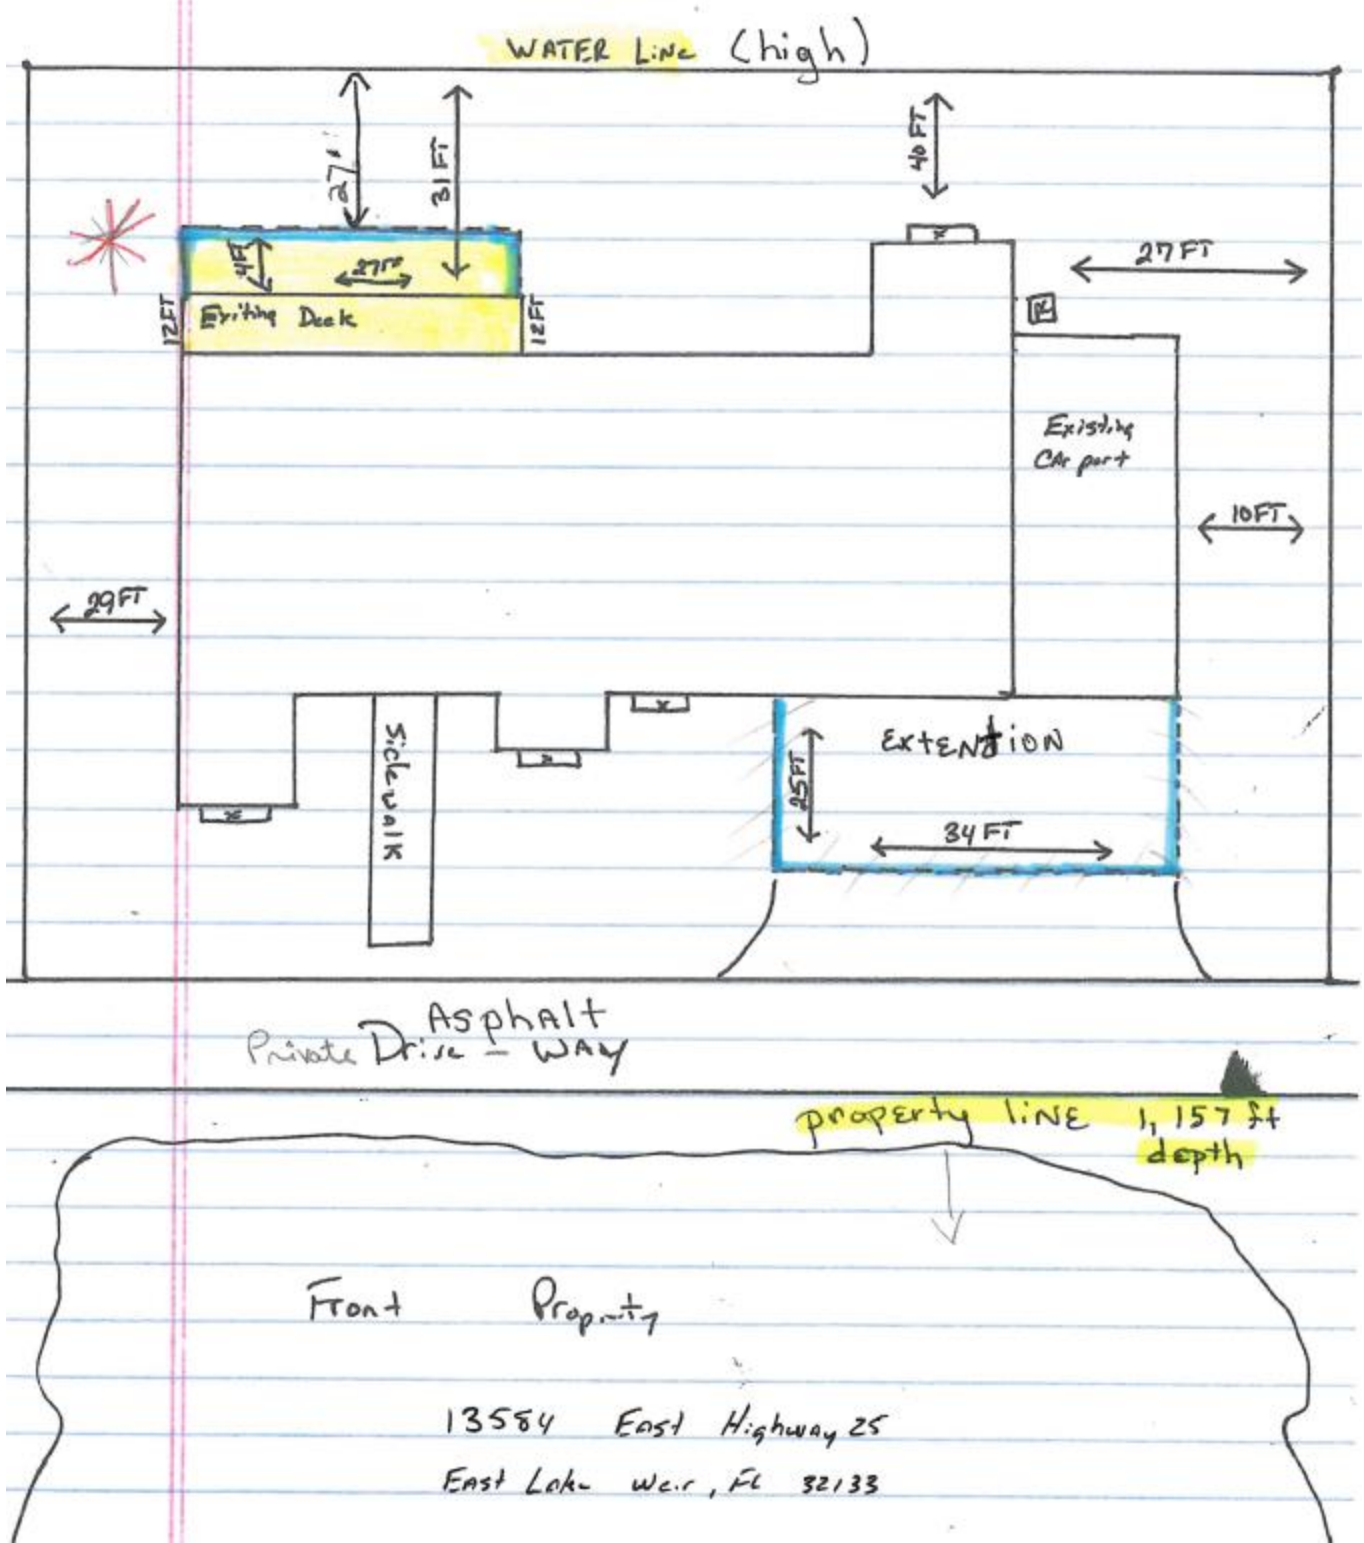 WATER LiNe (high)
27'
31 FT
40 FT
27 FT
4FT
27FT
12 FT
Exiting Deck
12 FT
R
Existing
CAr port
10 FT
29 FT
x
x
x
x
Sidewalk
EXtENtiON
25 FT
34 FT
Asphalt
Private Drive - WAY
property liNE 1,157 ft
depth
Front Property
13584 East Highway 25
EAST Lake Weir, FL 32133